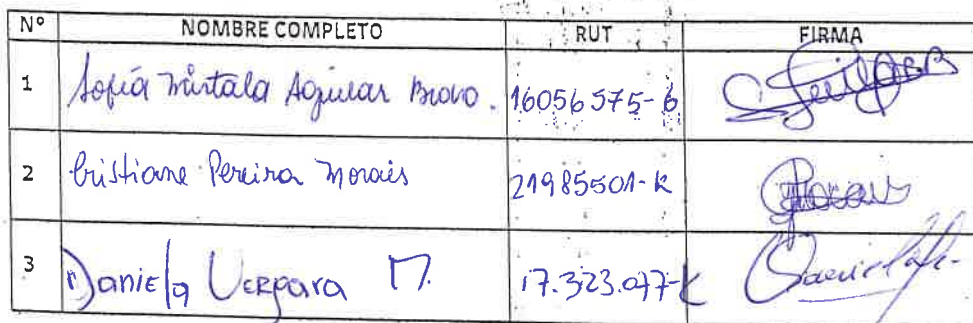 N° NOMBRE COMPLETO RUT FIRMA
1 Sofía Mirtala Aguilar Bravo. 16056575-6
2 Cristiane Pereira Morais 21985501-k
3 Daniela Vergara M. 17.323.077-K